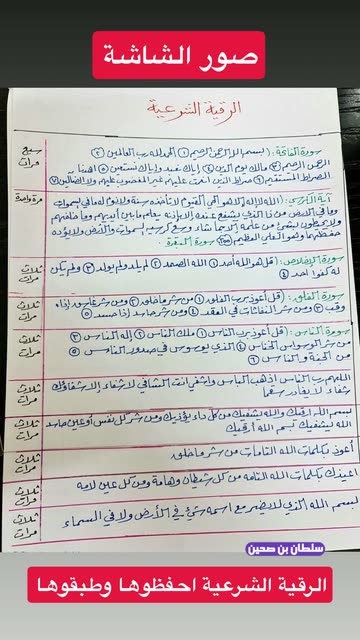 صور الشاشة
الرقية الشرعية
سبع
مرات
سورة الفاتحة: (بسم الله الرحمن الرحيم ١) الحمد لله رب العالمين ٢)
الرحمن الرحيم ٣) مالك يوم الدين ٤) إياك نعبد وإياك نستعين ٥) اهدنا
الصراط المستقيم ٦) صراط الذين أنعمت عليهم غير المغضوب عليهم ولا الضالين ٧)
مرة واحدة
آية الكرسي: (الله لا إله إلا هو الحي القيوم لا تأخذه سنة ولا نوم له ما في السموات
وما في الأرض من ذا الذي يشفع عنده إلا بإذنه يعلم ما بين أيديهم وما خلفهم
ولا يحيطون بشيء من علمه إلا بما شاء وسع كرسيه السموات والأرض ولا يؤده
حفظهما وهو العلي العظيم ٢٥٥) سورة البقرة
ثلاث
مرات
سورة الإخلاص: (قل هو الله أحد ١) الله الصمد ٢) لم يلد ولم يولد ٣) ولم يكن
له كفوا أحد ٤)
ثلاث
مرات
سورة الفلق: (قل أعوذ برب الفلق ١) من شر ما خلق ٢) ومن شر غاسق إذا
وقب ٣) ومن شر النفاثات في العقد ٤) ومن شر حاسد إذا حسد ٥)
ثلاث
مرات
سورة الناس: (قل أعوذ برب الناس ١) ملك الناس ٢) إله الناس ٣)
من شر الوسواس الخناس ٤) الذي يوسوس في صدور الناس ٥)
من الجنة والناس ٦)
ثلاث
مرات
اللهم رب الناس اذهب الباس واشفي انت الشافي لا شفاء إلا شفاؤك
شفاء لا يغادر سقما
ثلاث
مرات
بسم الله أرقيك والله يشفيك من كل داء يؤذيك ومن شر كل نفس أو عين حاسد
الله يشفيك بسم الله أرقيك
ثلاث
مرات
أعوذ بكلمات الله التامات من شر ما خلق
ثلاث
مرات
اعيذك بكلمات الله التامه من كل شيطان وهامة ومن كل عين لامه
ثلاث
مرات
بسم الله الذي لا يضر مع اسمه شيء في الأرض ولا في السماء
سلطان بن صحين
الرقية الشرعية احفظوها وطبقوها